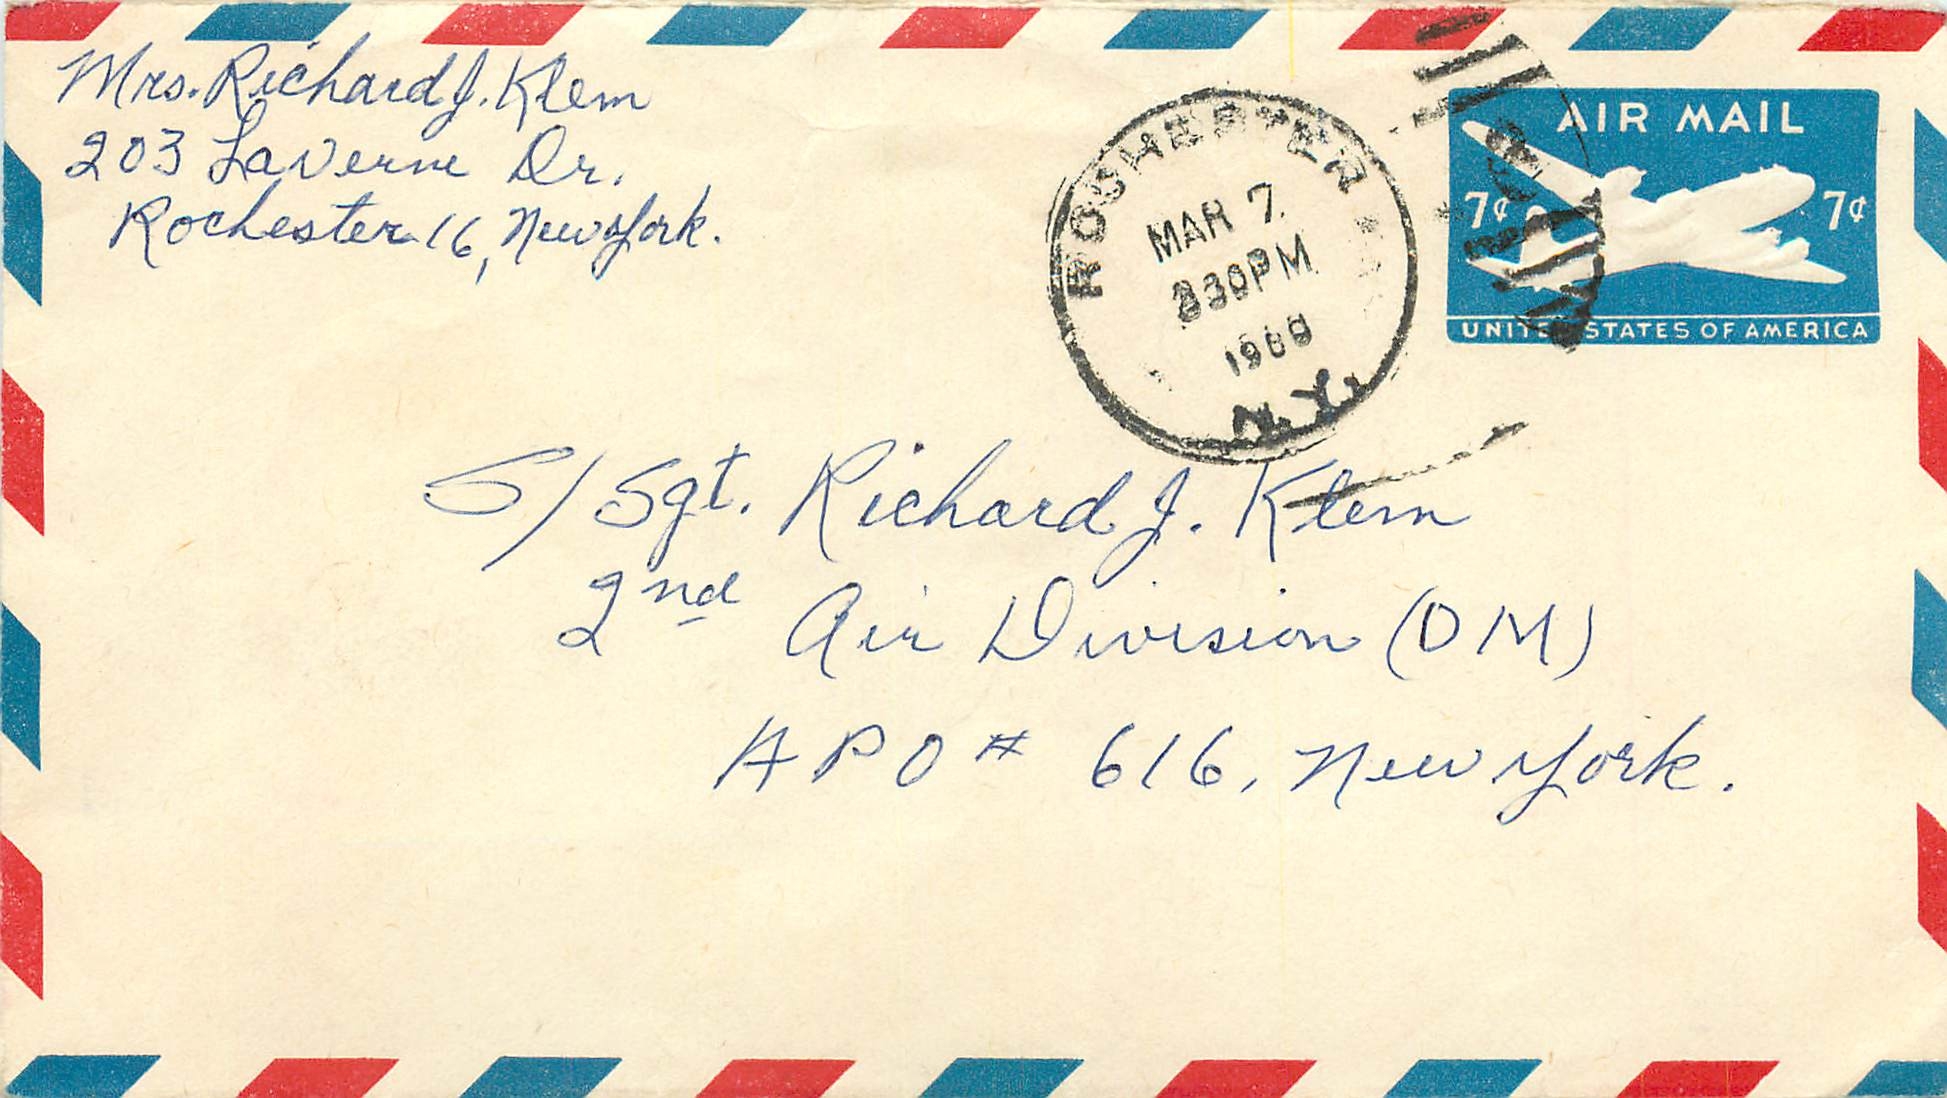 Mrs. Richard J. Klem
203 LaVerne Dr.
Rochester 16, New York.
ROCHESTER
MAR 7
830PM
1960
N.Y.
AIR MAIL
7¢ 7¢
UNITED STATES OF AMERICA
S/Sgt. Richard J. Klem
2nd Air Division (DM)
APO # 616, New York.